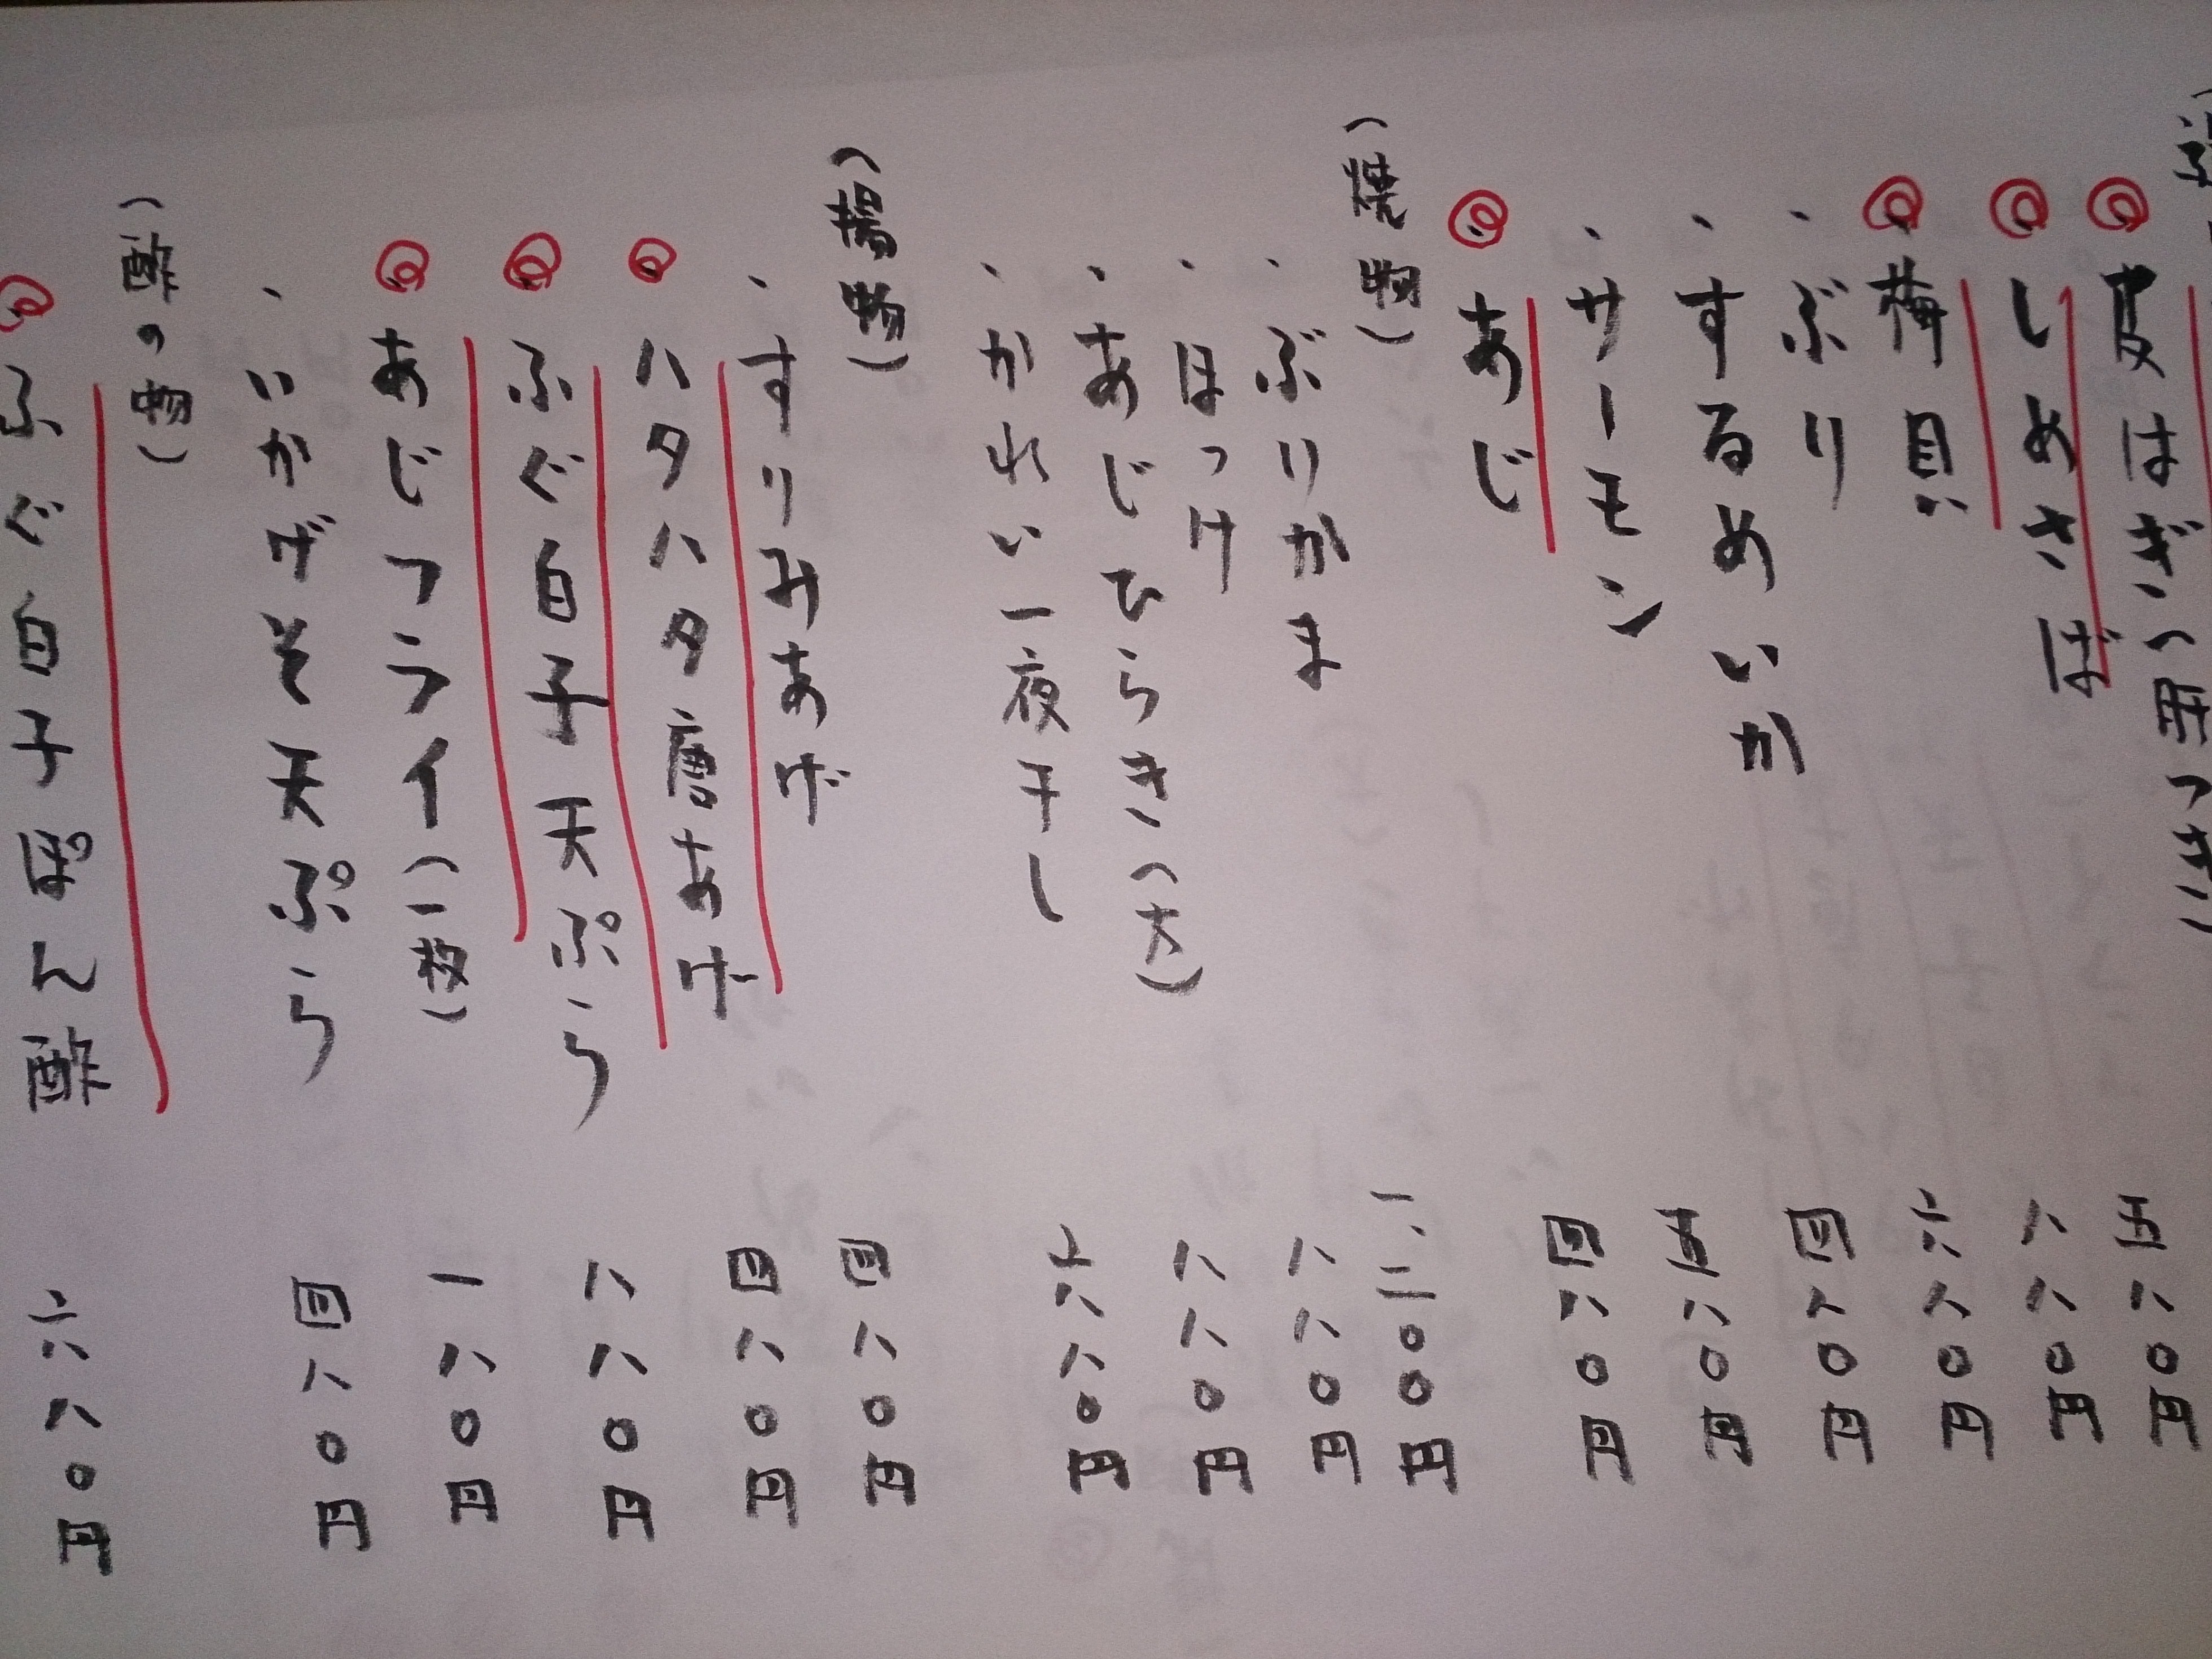 ◎皮はぎ(肝つき)
◎しめさば 五八〇円
◎梅貝 八八〇円
・ぶり 六八〇円
・するめいか 四八〇円
・サーモン 五八〇円
◎あじ 四八〇円
(焼物)
・ぶりかま 一二〇〇円
・ほっけ 八八〇円
・あじひらき(大) 八八〇円
・かれい一夜干し 六八〇円
(揚物)
・すりみあげ 四八〇円
◎ハタハタ唐あげ 四八〇円
◎ふぐ白子天ぷら 八八〇円
◎あじフライ(一枚) 一八〇円
・いかげそ天ぷら 四八〇円
(酢の物)
◎ふぐ白子ぽん酢 六八〇円